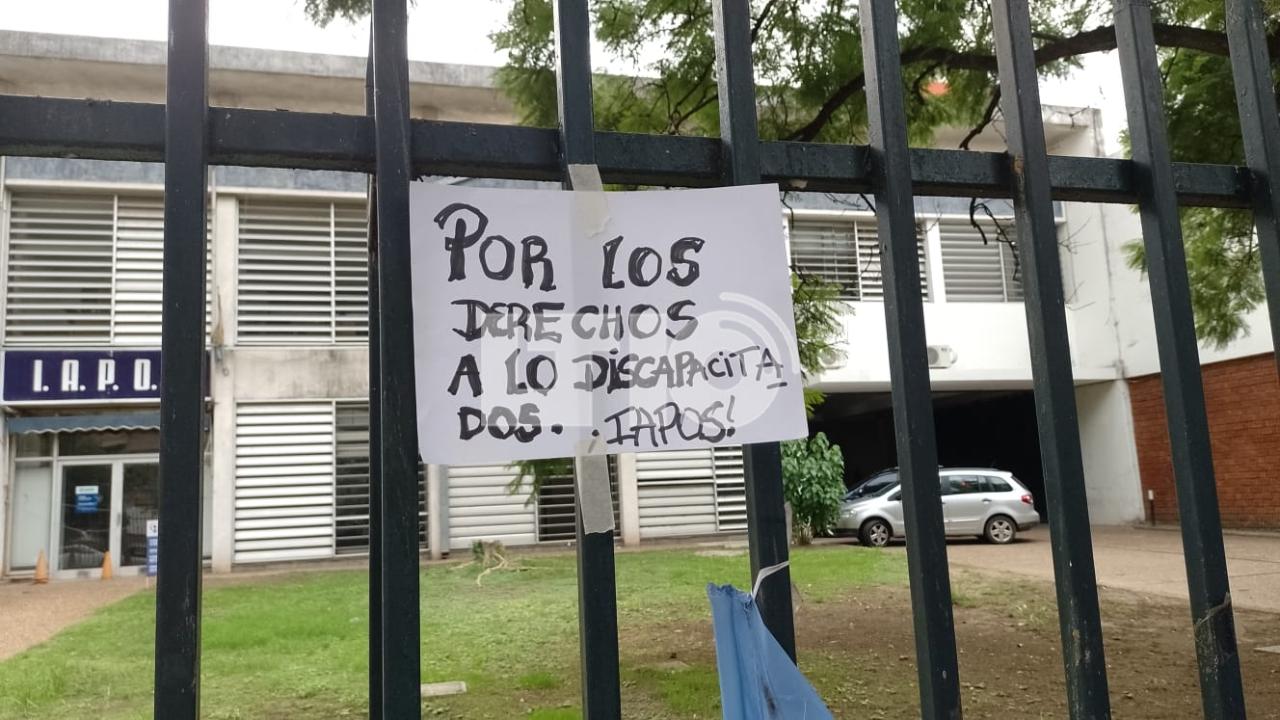 POR LOS
DERECHOS
A LO DISCAPACITA
DOS. . IAPOS!
I. A. P. O.